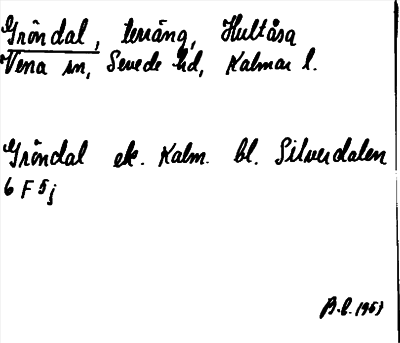 Gröndal, terräng, Hultåsa
Vena sn, Sevede hd, Kalmar l.
Gröndal ek. Kalm. bl. Silverdalen
6 F 5 j